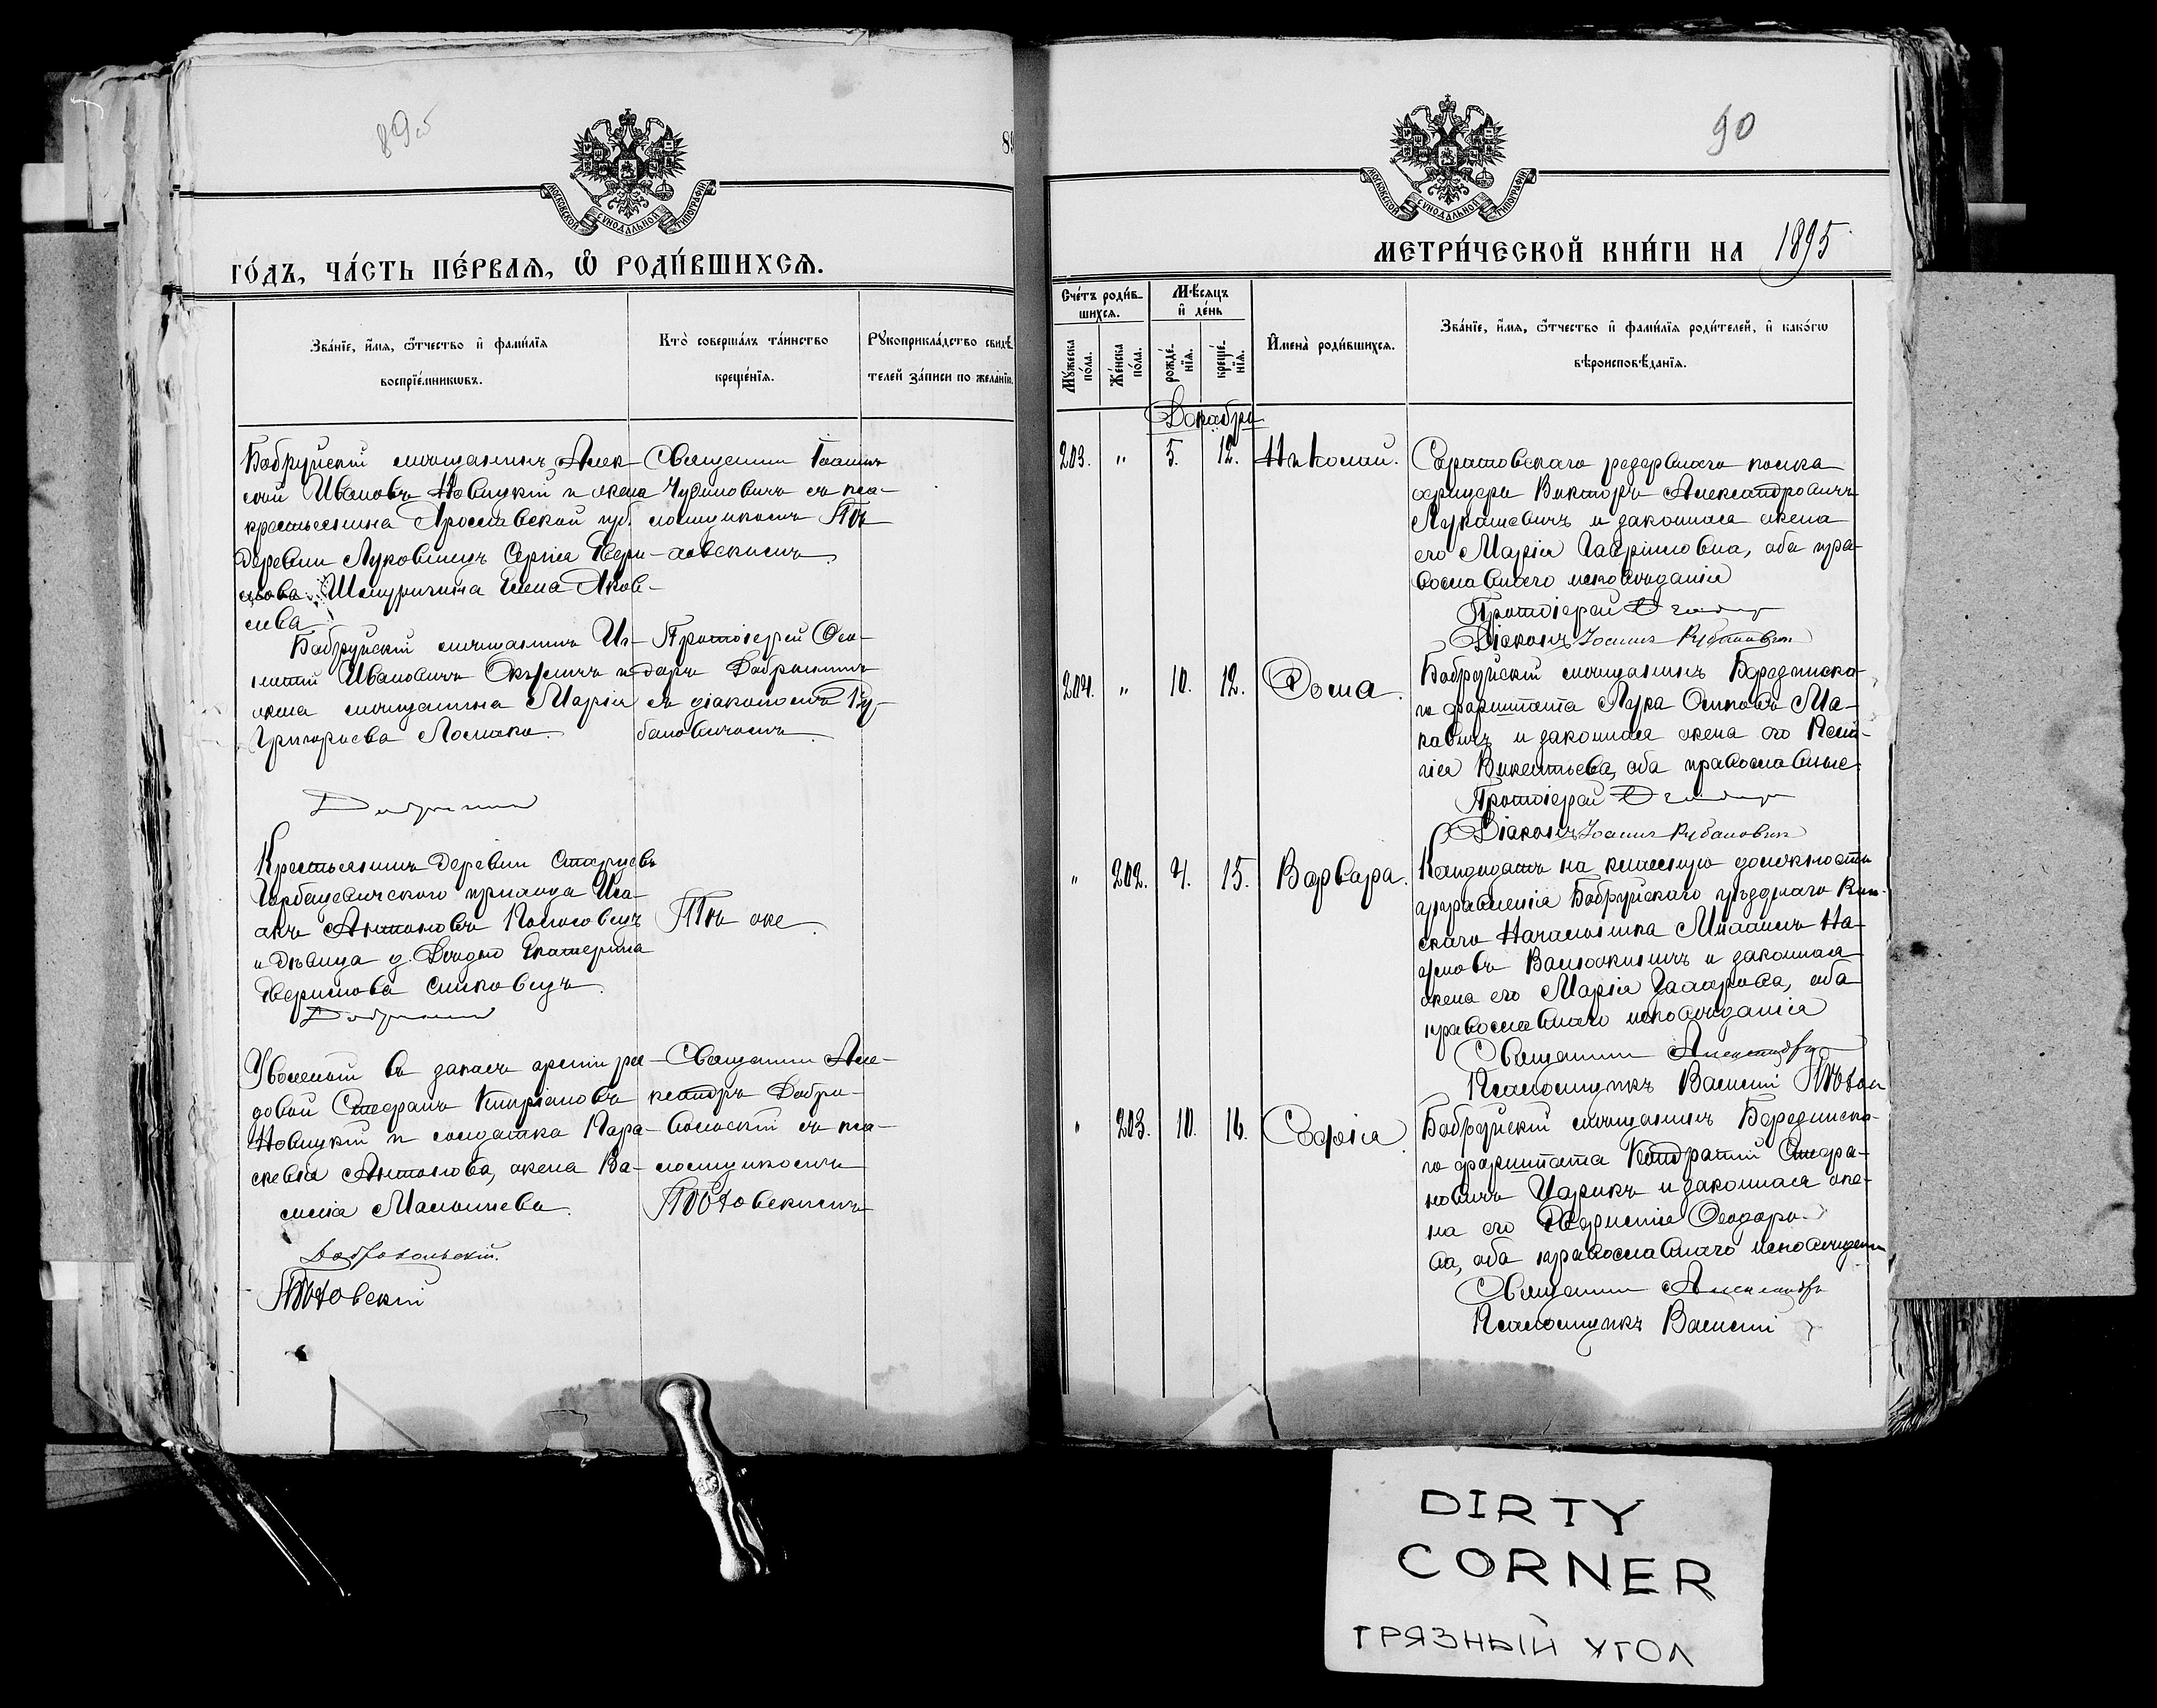 89об
МОСКОВСКОЙ СУНОДАЛЬНОЙ ТИПОГРАФІИ
ГО́ДЪ, ЧА́СТЬ ПЕ́РВАЯ, Ѡ҆ РОДИ́ВШИХСЯ.
Зва́нїе, и҆́мя, ѻ҆́тчество и҆ фами́лїѧ
воспрїе́мникѡвъ.
Кто̀ соверша́лъ та́инство
креще́нїѧ.
Рꙋкоприкла́дство свидѣ́-
телей за́писи по жела́нїю.
Бобруйскій мѣщанинъ Алек-
сѣй Ивановъ Новицкій и жена
крестьянина Ярославской губ.
деревни Сергія
Елена Яков-
лева
Священникъ Іоаннъ
съ пса-
ломщикомъ
Бобруйскій мѣщанинъ Иг-
натій Ивановичъ и
жена мѣщанина Марія
Григорьева
Протоіерей Ѳео-
доръ
съ діакономъ Ру-
бановичемъ
Крестьянинъ деревни
Горбацевичскаго прихода Иса-
акъ Антоновъ
и дѣвица д. Екатерина
Священникъ Але-
ксандръ Добро-
вольскій съ пса-
ломщикомъ
Тотъ же
Уволеный въ запасъ арміи ря-
довой Стефанъ Кипріановъ
Новицкій и солдатка Пара-
скевія Антонова, жена Ва-
силія
Добровольскій.
90
МОСКОВСКОЙ СУНОДАЛЬНОЙ ТИПОГРАФІИ
МЕТРИ́ЧЕСКОЙ КНИ́ГИ НА 1895
Сче́тъ роди́в-
шихсѧ.
Мꙋ́жеска
по́ла.
Же́нска
по́ла.
Мѣ́сѧцъ
и҆ де́нь
рожде́-
нїѧ.
креще́-
нїѧ.
И҆мена̀ роди́вшихсѧ.
Зва́нїе, и҆́мя, ѻ҆́тчество и҆ фами́лїѧ роди́телей, и҆ како́гѡ
вѣроисповѣ́данїѧ.
Декабрь
203. " 5. 12. Николай.
Саратовскаго резервнаго полка
офицеръ Викторъ Александровичъ
Лукашевичъ и законная жена
его Марія Гавріиловна, оба пра-
вославнаго исповѣданія
Протоіерей
Діаконъ Іоаннъ Рубановичъ
204. " 10. 12. Ѳома.
Бобруйскій мѣщанинъ Березинска-
го форштата Лука Осиповъ Ма-
кавичъ и законная жена его Ксе-
нія Викентьева, оба православные.
Протоіерей
Діаконъ Іоаннъ Рубановичъ
" 202. 4. 15. Варвара.
Кандидатъ на классную должность
управленія Бобруйскаго уѣзднаго Воин-
скаго Начальника Михаилъ На-
умовъ и законная
жена его Марія Захарова, оба
православнаго исповѣданія
Священникъ Александръ
Псаломщикъ Василій
" 203. 10. 16. Софія.
Бобруйскій мѣщанинъ Березинска-
го форштата Кондратій Стефа-
новичъ Царикъ и законная же-
на его Ѳеодоро-
ва, оба православнаго исповѣданія
Священникъ Александръ
Псаломщикъ Василій
DIRTY
CORNER
ГРЯЗНЫЙ УГОЛ